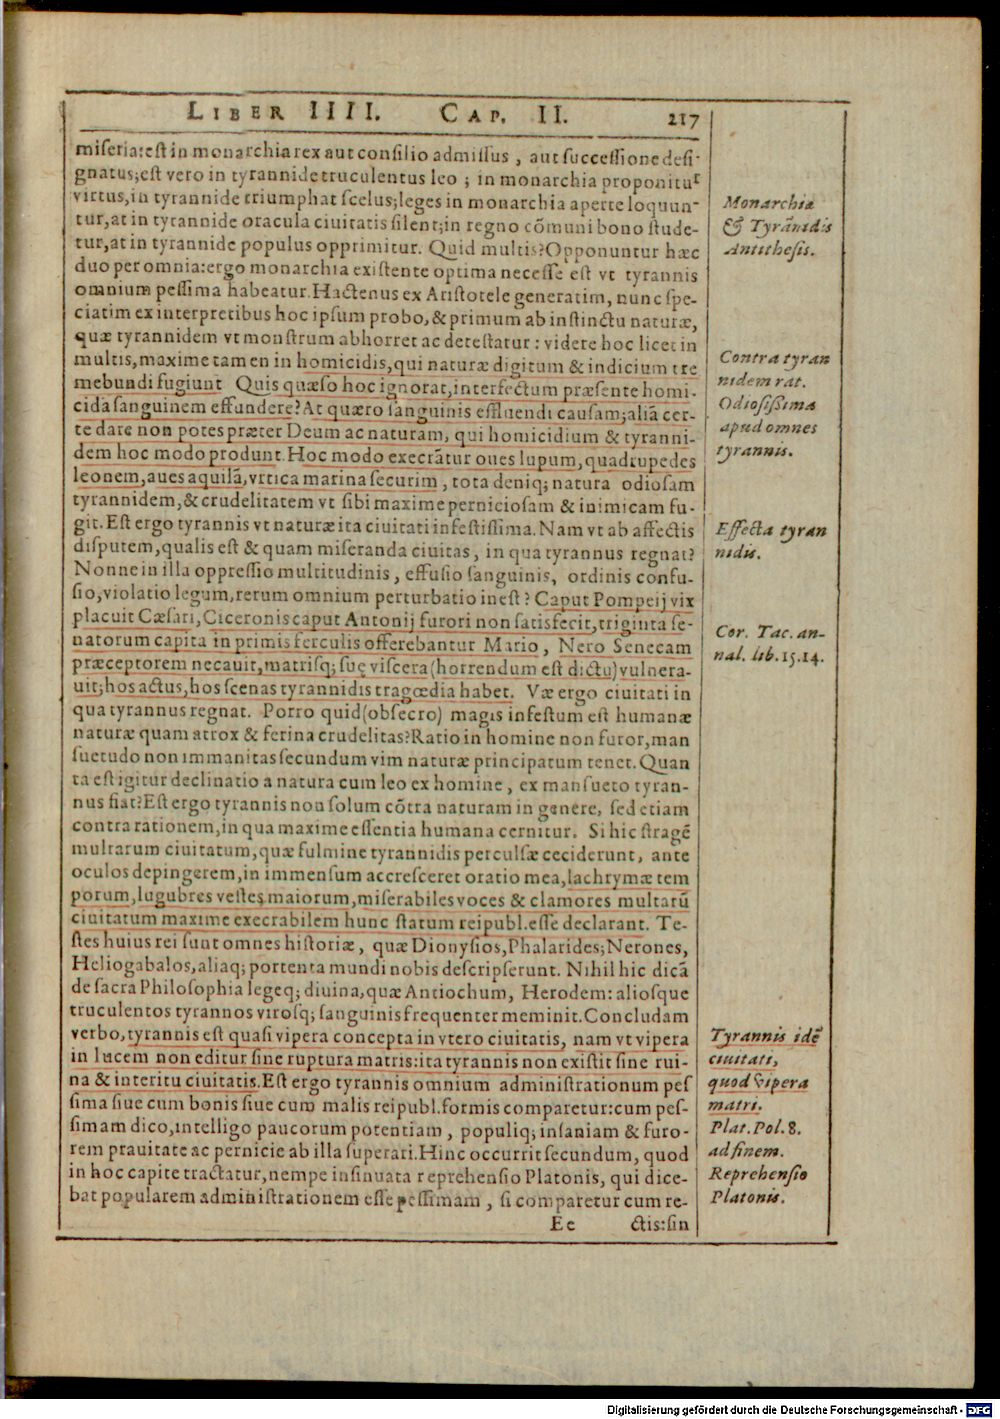 LIBER IIII. CAP. II. 217
miseria: est in monarchia rex aut consilio admissus, aut successione desi-
gnatus; est vero in tyrannide truculentus leo; in monarchia proponitur
virtus, in tyrannide triumphat scelus; leges in monarchia aperte loquun-
tur, at in tyrannide oracula ciuitatis silent; in regno cōmuni bono stude-
tur, at in tyrannide populus opprimitur. Quid multis? Opponuntur hæc
duo per omnia: ergo monarchia existente optima necesse est vt tyrannis
omnium pessima habeatur. Hactenus ex Aristotele generatim, nunc spe-
ciatim ex interpretibus hoc ipsum probo, & primum ab instinctu naturæ,
quæ tyrannidem vt monstrum abhorret ac detestatur: videre hoc licet in
multis, maxime tamen in homicidis, qui naturæ digitum & indicium tre
mebundi fugiunt Quis quæso hoc ignorat, interfectum præsente homi-
cida sanguinem effundere? At quæro sanguinis effluendi causam; aliā cer-
te dare non potes præter Deum ac naturam, qui homicidium & tyranni-
dem hoc modo produnt. Hoc modo execrātur oues lupum, quadrupedes
leonem, aues aquilā, vrtica marina securim, tota deniq; natura odiosam
tyrannidem, & crudelitatem vt sibi maxime perniciosam & inimicam fu-
git. Est ergo tyrannis vt naturæ ita ciuitati infestissima. Nam vt ab affectis
disputem, qualis est & quam miseranda ciuitas, in qua tyrannus regnat?
Nonne in illa oppressio multitudinis, effusio sanguinis, ordinis confu-
sio, violatio legum, rerum omnium perturbatio inest? Caput Pompeij vix
placuit Cæsari, Ciceronis caput Antonij furori non satisfecit, triginta se-
natorum capita in primis ferculis offerebantur Mario, Nero Senecam
præceptorem necauit, matrisq; suę viscera (horrendum est dictu) vulnera-
uit; hos actus, hos scenas tyrannidis tragœdia habet. Væ ergo ciuitati in
qua tyrannus regnat. Porro quid (obsecro) magis infestum est humanæ
naturæ quam atrox & ferina crudelitas? Ratio in homine non furor, man
suetudo non immanitas secundum vim naturæ principatum tenet. Quan
ta est igitur declinatio a natura cum leo ex homine, ex mansueto tyran-
nus fiat? Est ergo tyrannis non solum cōtra naturam in genere, sed etiam
contra rationem, in qua maxime essentia humana cernitur. Si hic stragē
multarum ciuitatum, quæ fulmine tyrannidis perculsæ ceciderunt, ante
oculos depingerem, in immensum accresceret oratio mea, lachrymæ tem
porum, lugubres vestes maiorum, miserabiles voces & clamores multarū
ciuitatum maxime execrabilem hunc statum reipubl. esse declarant. Te-
stes huius rei sunt omnes historiæ, quæ Dionysios, Phalarides; Nerones,
Heliogabalos, aliaq; portenta mundi nobis descripserunt. Nihil hic dicā
de sacra Philosophia legeq; diuina, quæ Antiochum, Herodem: aliosque
truculentos tyrannos virosq; sanguinis frequenter meminit. Concludam
verbo, tyrannis est quasi vipera concepta in vtero ciuitatis, nam vt vipera
in lucem non editur sine ruptura matris: ita tyrannis non existit sine rui-
na & interitu ciuitatis. Est ergo tyrannis omnium administrationum pes
sima siue cum bonis siue cum malis reipubl. formis comparetur: cum pes-
simam dico, intelligo paucorum potentiam, populiq; insaniam & furo-
rem prauitate ac pernicie ab illa superari. Hinc occurrit secundum, quod
in hoc capite tractatur, nempe insinuata reprehensio Platonis, qui dice-
bat popularem administrationem esse pessimam, si comparetur cum re-
Ee ctis: sin
Monarchiæ
& Tyrānidis
Antithesis.
Contra tyran
nidem rat.
Odiosissima
apud omnes
tyrannis.
Effecta tyran
nidis.
Cor. Tac. an-
nal. lib. 15. 14.
Tyrannis idē
ciuitati,
quod vipera
matri.
Plat. Pol. 8.
ad finem.
Reprehensio
Platonis.
Digitalisierung gefördert durch die Deutsche Forschungsgemeinschaft - DFG